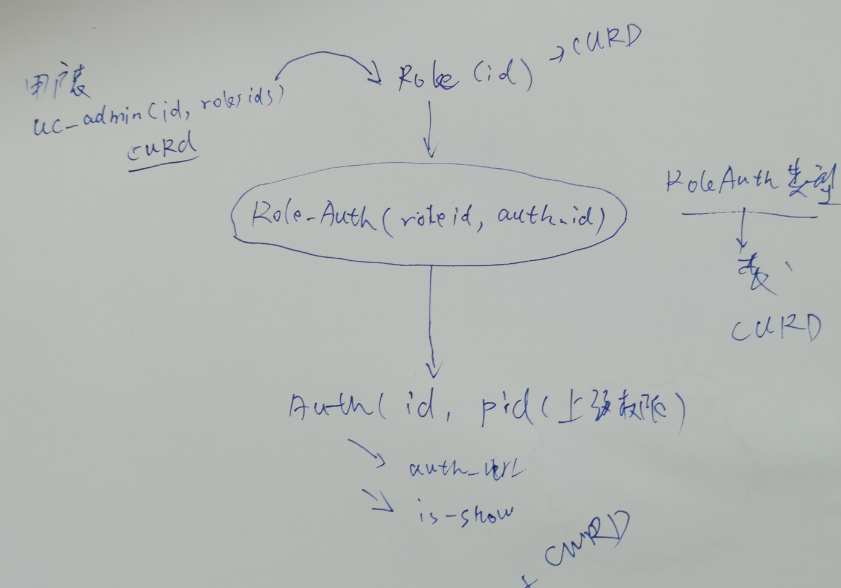 用户表
uc_admin(id, rolesids)
curd
Role (id) → CURD
Role-Auth(roleid, auth_id)
RoleAuth 类型
表
CURD
Auth( id, pid(上级权限)
auth_url
is-show
CURD